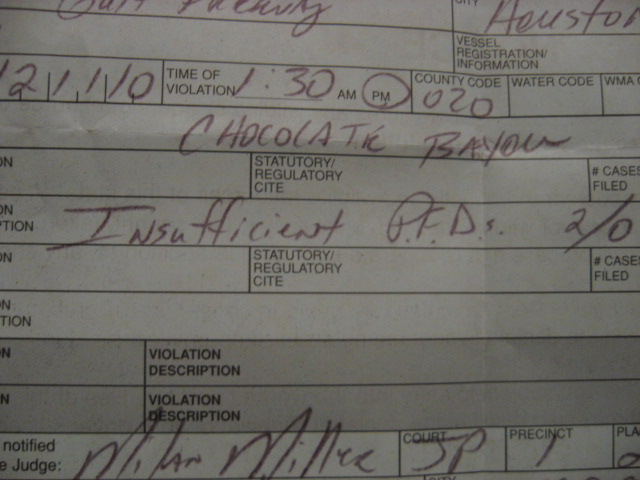 CITY Houston
VESSEL REGISTRATION/ INFORMATION
2 1 1 1 0 TIME OF VIOLATION 1:30 AM PM COUNTY CODE 020 WATER CODE WMA
CHOCOLATE BAYOU
ON STATUTORY/ REGULATORY CITE # CASES FILED
ON PTION Insufficient P.F.D.s. 2/0
ON STATUTORY/ REGULATORY CITE # CASES FILED
ON TION
N VIOLATION DESCRIPTION
N VIOLATION DESCRIPTION
notified e Judge: Milan Miller COURT JP PRECINCT 1 PLA